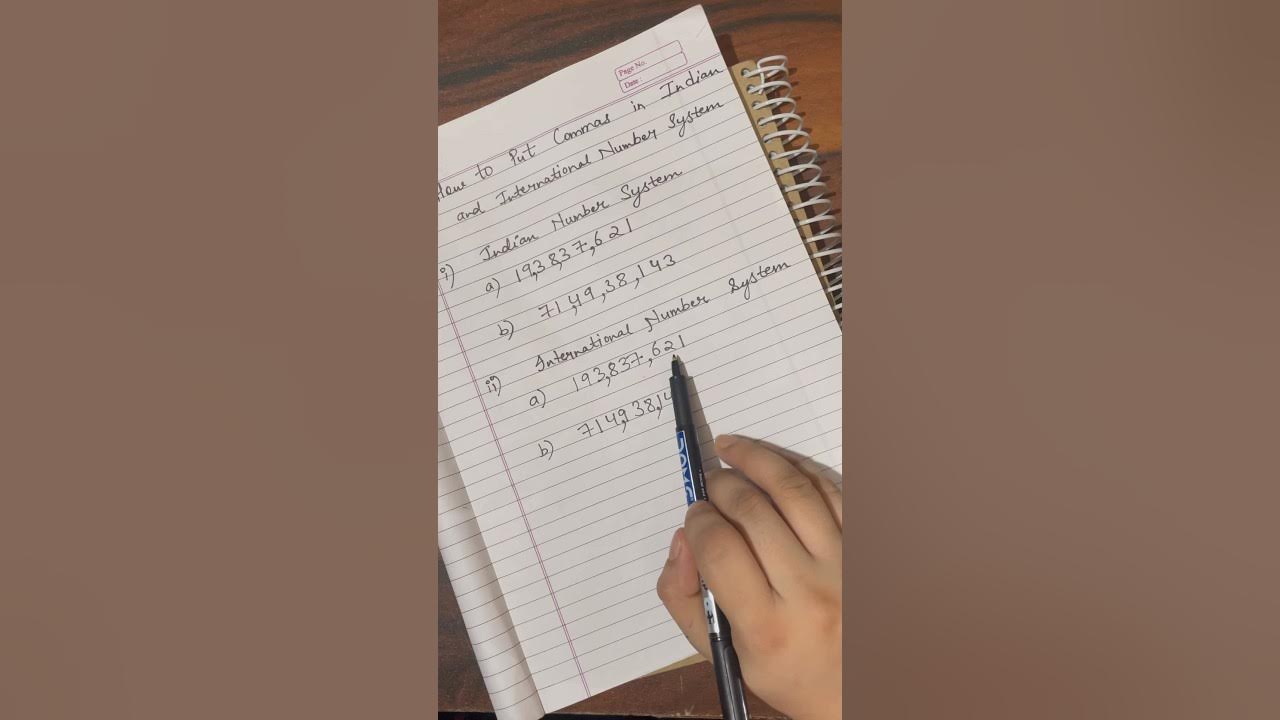 Page No.
Date :
How to Put Commas in Indian
and International Number System
i) Indian Number System
a) 19,38,37,621
b) 71,49,38,143
ii) International Number System
a) 193,837,621
b) 714,938,14